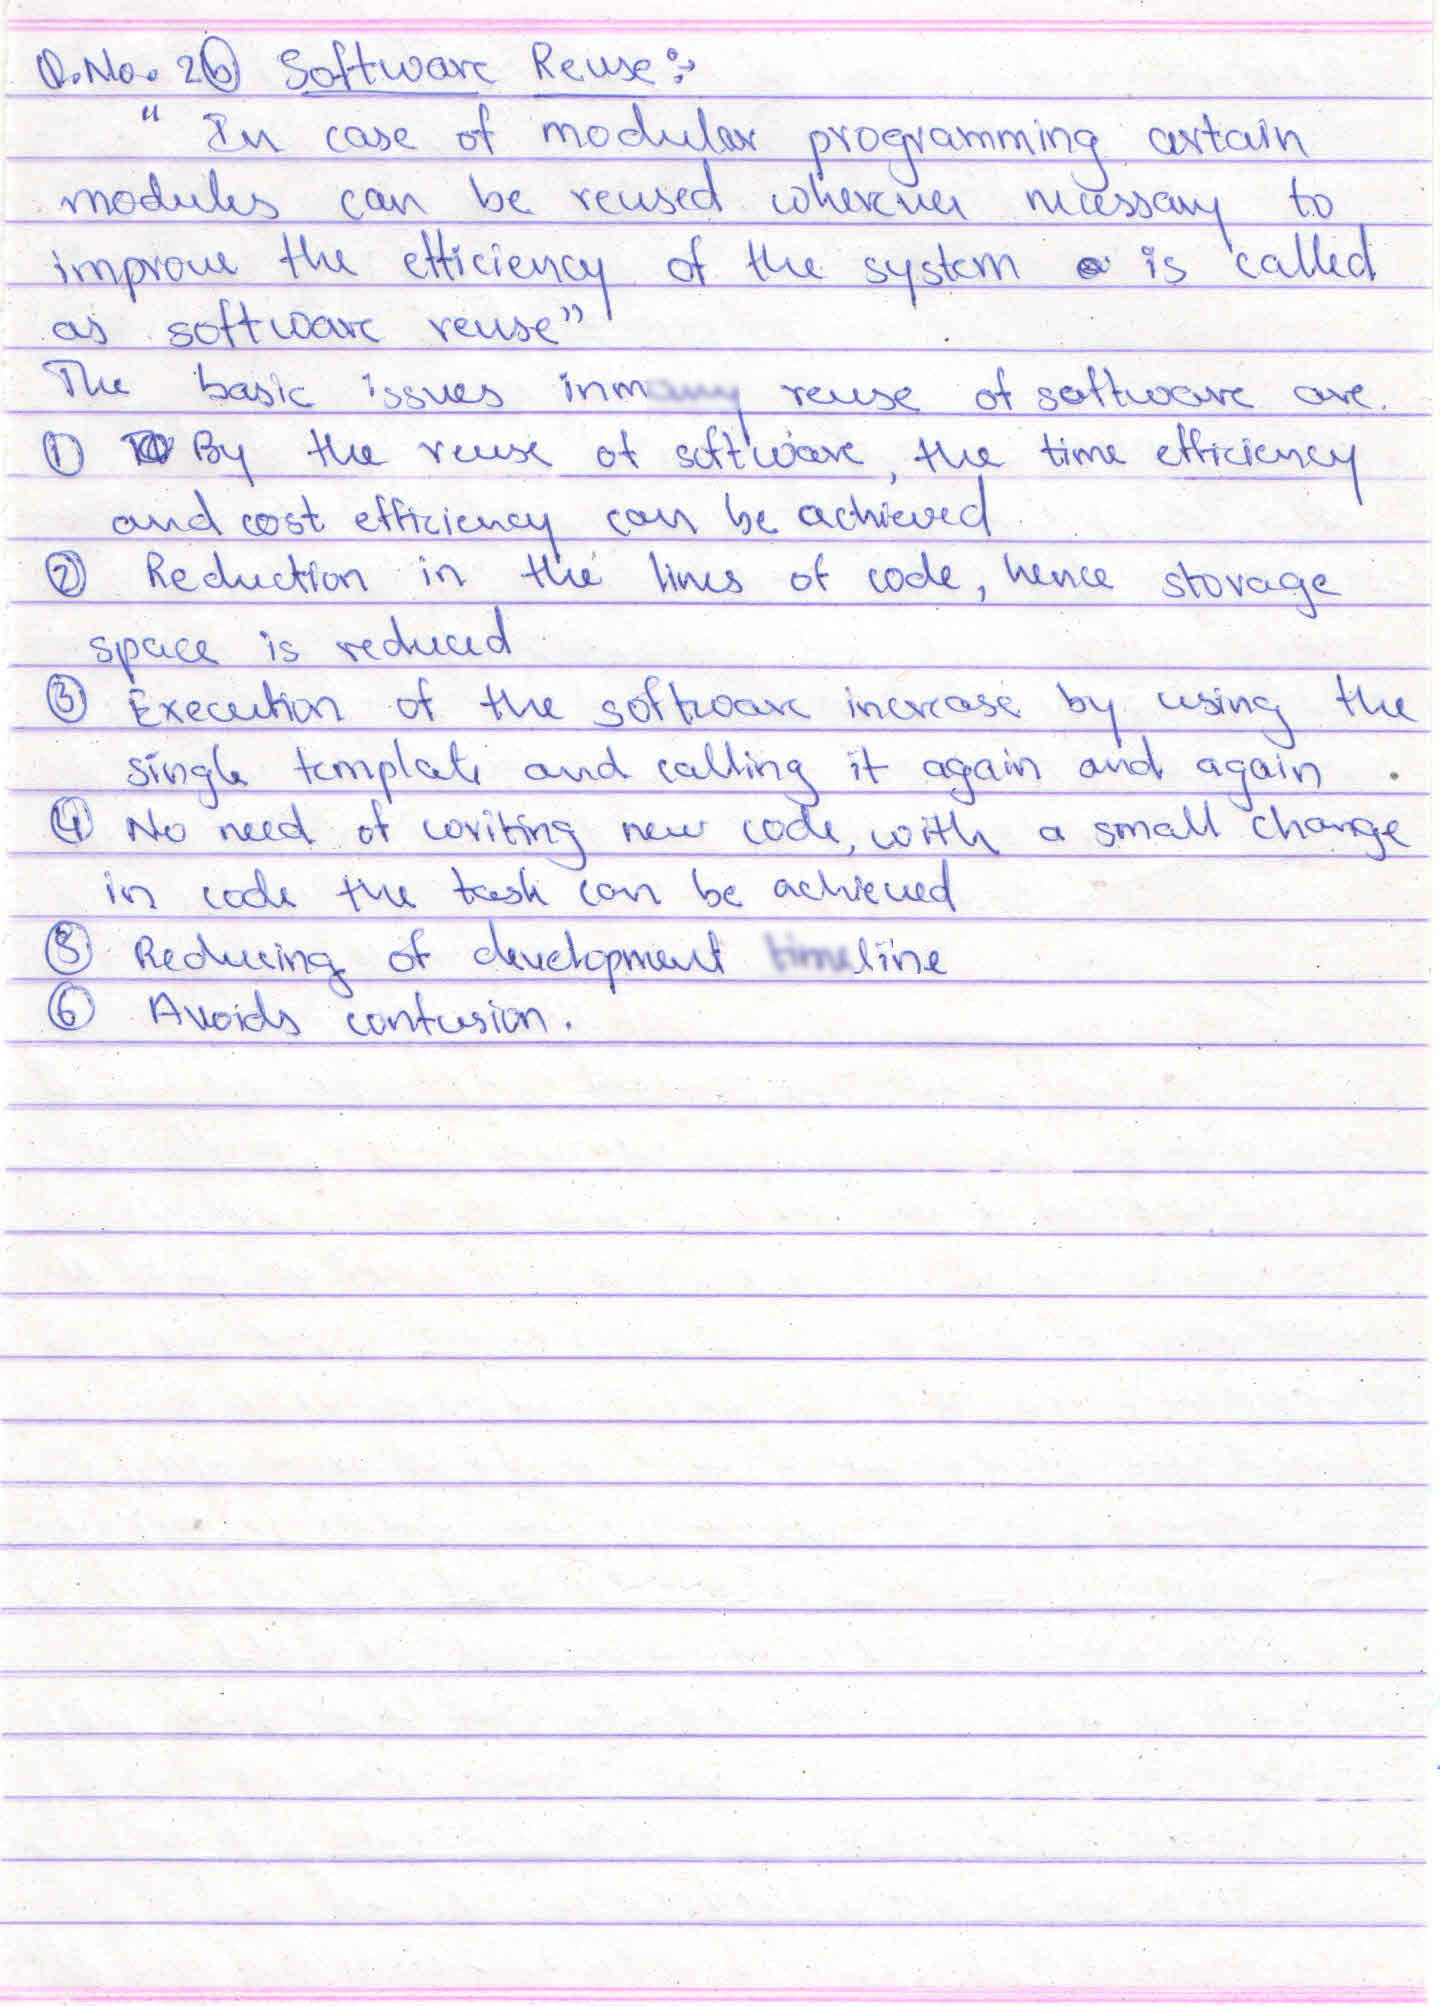 Q.No. 2(b) Software Reuse:→
" In case of modular programming certain
modules can be reused wherever necessary to
improve the efficiency of the system is called
as software reuse"
The basic issues in reuse of software are.
① By the reuse of software, the time efficiency
and cost efficiency can be achieved
② Reduction in the lines of code, hence storage
space is reduced
③ Execution of the software increase by using the
single template and calling it again and again .
④ No need of writing new code, with a small change
in code the task can be achieved
⑤ Reducing of development line
⑥ Avoids confusion.